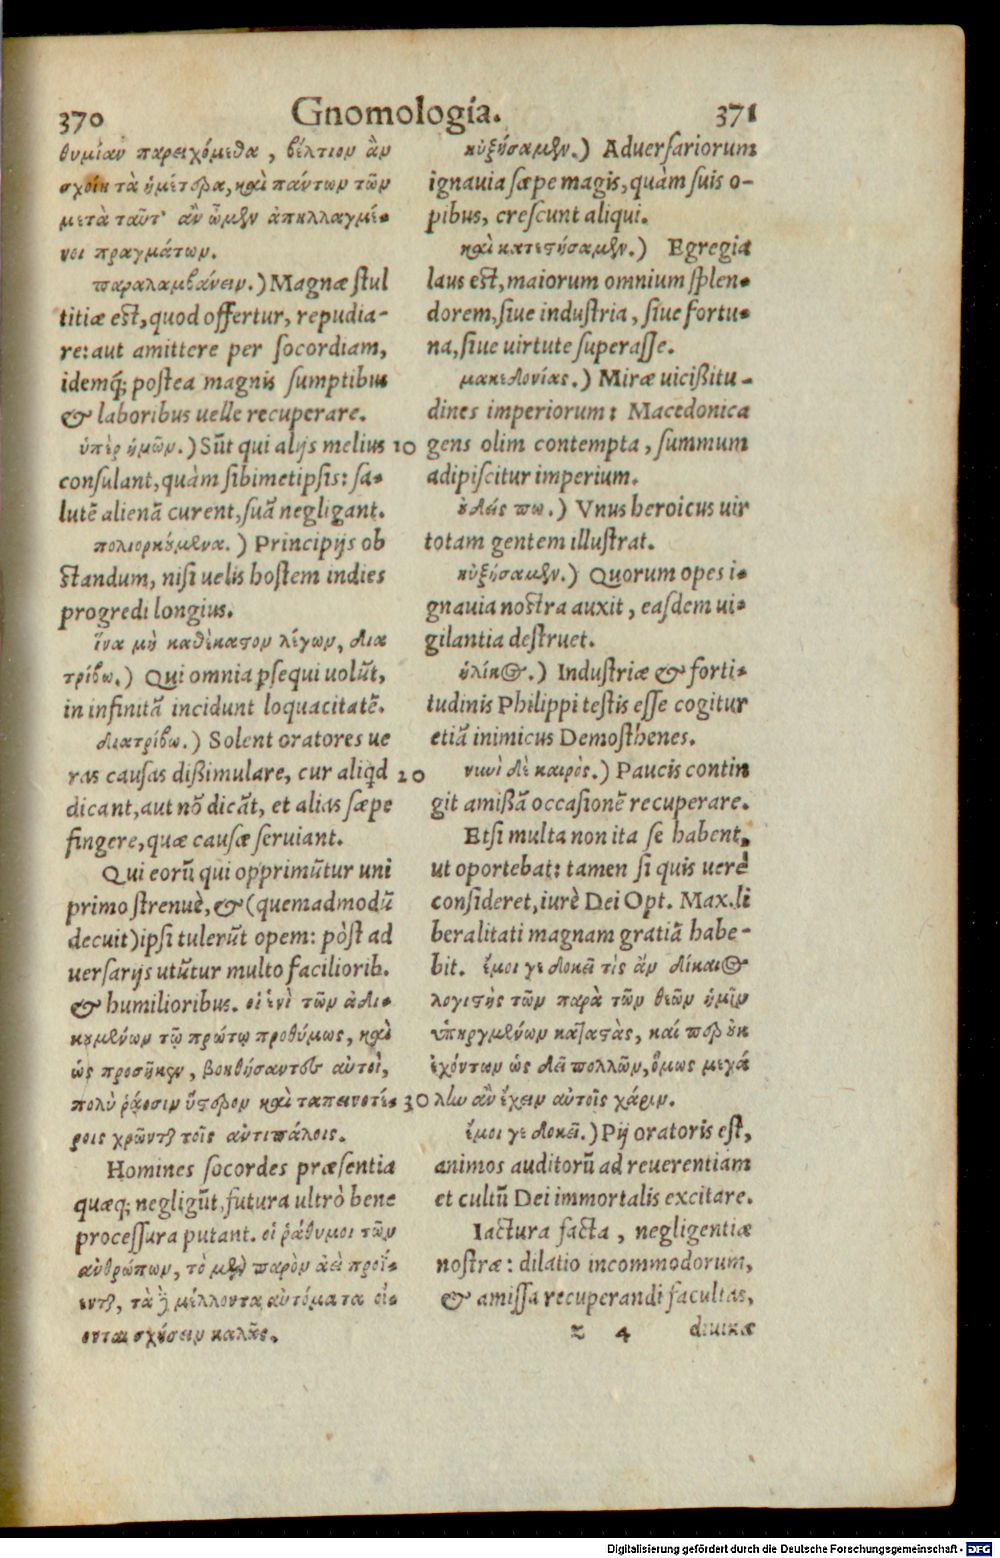 370 Gnomologia. 371
θυμίαν παρειχόμεθα, βέλτιον ἂν
σχοίη τὰ ἡμέτερα, καὶ πάντων τῶν
μετὰ ταῦτ' ἂν ὦμεν ἀπηλλαγμέ-
νοι πραγμάτων.
παραλαμβάνειν.) Magnæ stul
titiæ est, quod offertur, repudia-
re: aut amittere per socordiam,
idemq́; postea magnis sumptibus
& laboribus uelle recuperare.
ὑπὲρ ἡμῶν.) Sũt qui alijs melius 10
consulant, quàm sibimetipsis: sa-
lutẽ alienã curent, suã negligant.
πολιορκούμενα.) Principijs ob
standum, nisi uelis hostem indies
progredi longius.
ἵνα μὴ καθ' ἕκαστον λέγων, δια
τρίβω.) Qui omnia ꝑsequi uolũt,
in infinitã incidunt loquacitatẽ.
διατρίβω.) Solent oratores ue
ras causas dißimulare, cur aliqd 20
dicant, aut nõ dicãt, et alias sæpe
fingere, quæ causæ seruiant.
Qui eorũ qui opprimũtur uni
primo strenuè, & (quemadmodũ
decuit) ipsi tulerũt opem: pòst ad
uersarijs utũtur multo faciliorib.
& humilioribus. οἱ ἑνὶ τῶν ἀδι-
κουμένων τῷ πρώτῳ προθύμως, καὶ
ὡς προσῆκεν, βοηθήσαντες αὐτοὶ,
πολὺ ῥᾴοσιν ὕστερον καὶ ταπεινοτέ- 30
ροις χρῶνται τοῖς ἀντιπάλοις.
Homines socordes præsentia
quæq; negligũt, futura ultrò bene
processura putant. οἱ ῥάθυμοι τῶν
ἀνθρώπων, τὸ μὲν παρὸν ἀεὶ προΐ-
ενται, τὰ δὲ μέλλοντα αὐτόματα οἴ-
ονται σχήσειν καλῶς.
ηὐξήσαμεν.) Aduersariorum
ignauia sæpe magis, quàm suis o-
pibus, crescunt aliqui.
καὶ κατεστήσαμεν.) Egregia
laus est, maiorum omnium splen-
dorem, siue industria, siue fortu-
na, siue uirtute superasse.
μακεδονίας.) Miræ uicißitu-
dines imperiorum: Macedonica
gens olim contempta, summum
adipiscitur imperium.
οὐδείς πω.) Vnus heroicus uir
totam gentem illustrat.
ηὐξήσαμεν.) Quorum opes i-
gnauia nostra auxit, easdem ui-
gilantia destruet.
ἡλίκος.) Industriæ & forti-
tudinis Philippi testis esse cogitur
etiã inimicus Demosthenes.
νυνὶ δὲ καιρὸς.) Paucis contin
git amißã occasionẽ recuperare.
Etsi multa non ita se habent,
ut oportebat: tamen si quis uerè
consideret, iurè Dei Opt. Max. li
beralitati magnam gratiã habe-
bit. ἔμοι γε δοκεῖ τὶς ἂν δίκαιος
λογιστὴς τῶν παρὰ τῶν θεῶν ἡμῖν
ὑπηργμένων καταστὰς, καίπερ οὐκ
ἐχόντων ὡς δεῖ πολλῶν, ὅμως μεγά
λην ἂν ἔχειν αὐτοῖς χάριν.
ἔμοι γε δοκεῖ.) Pij oratoris est,
animos auditorũ ad reuerentiam
et cultũ Dei immortalis excitare.
Iactura facta, negligentiæ
nostræ: dilatio incommodorum,
& amissa recuperandi facultas,
z 4 diuinæ
Digitalisierung gefördert durch die Deutsche Forschungsgemeinschaft - DFG